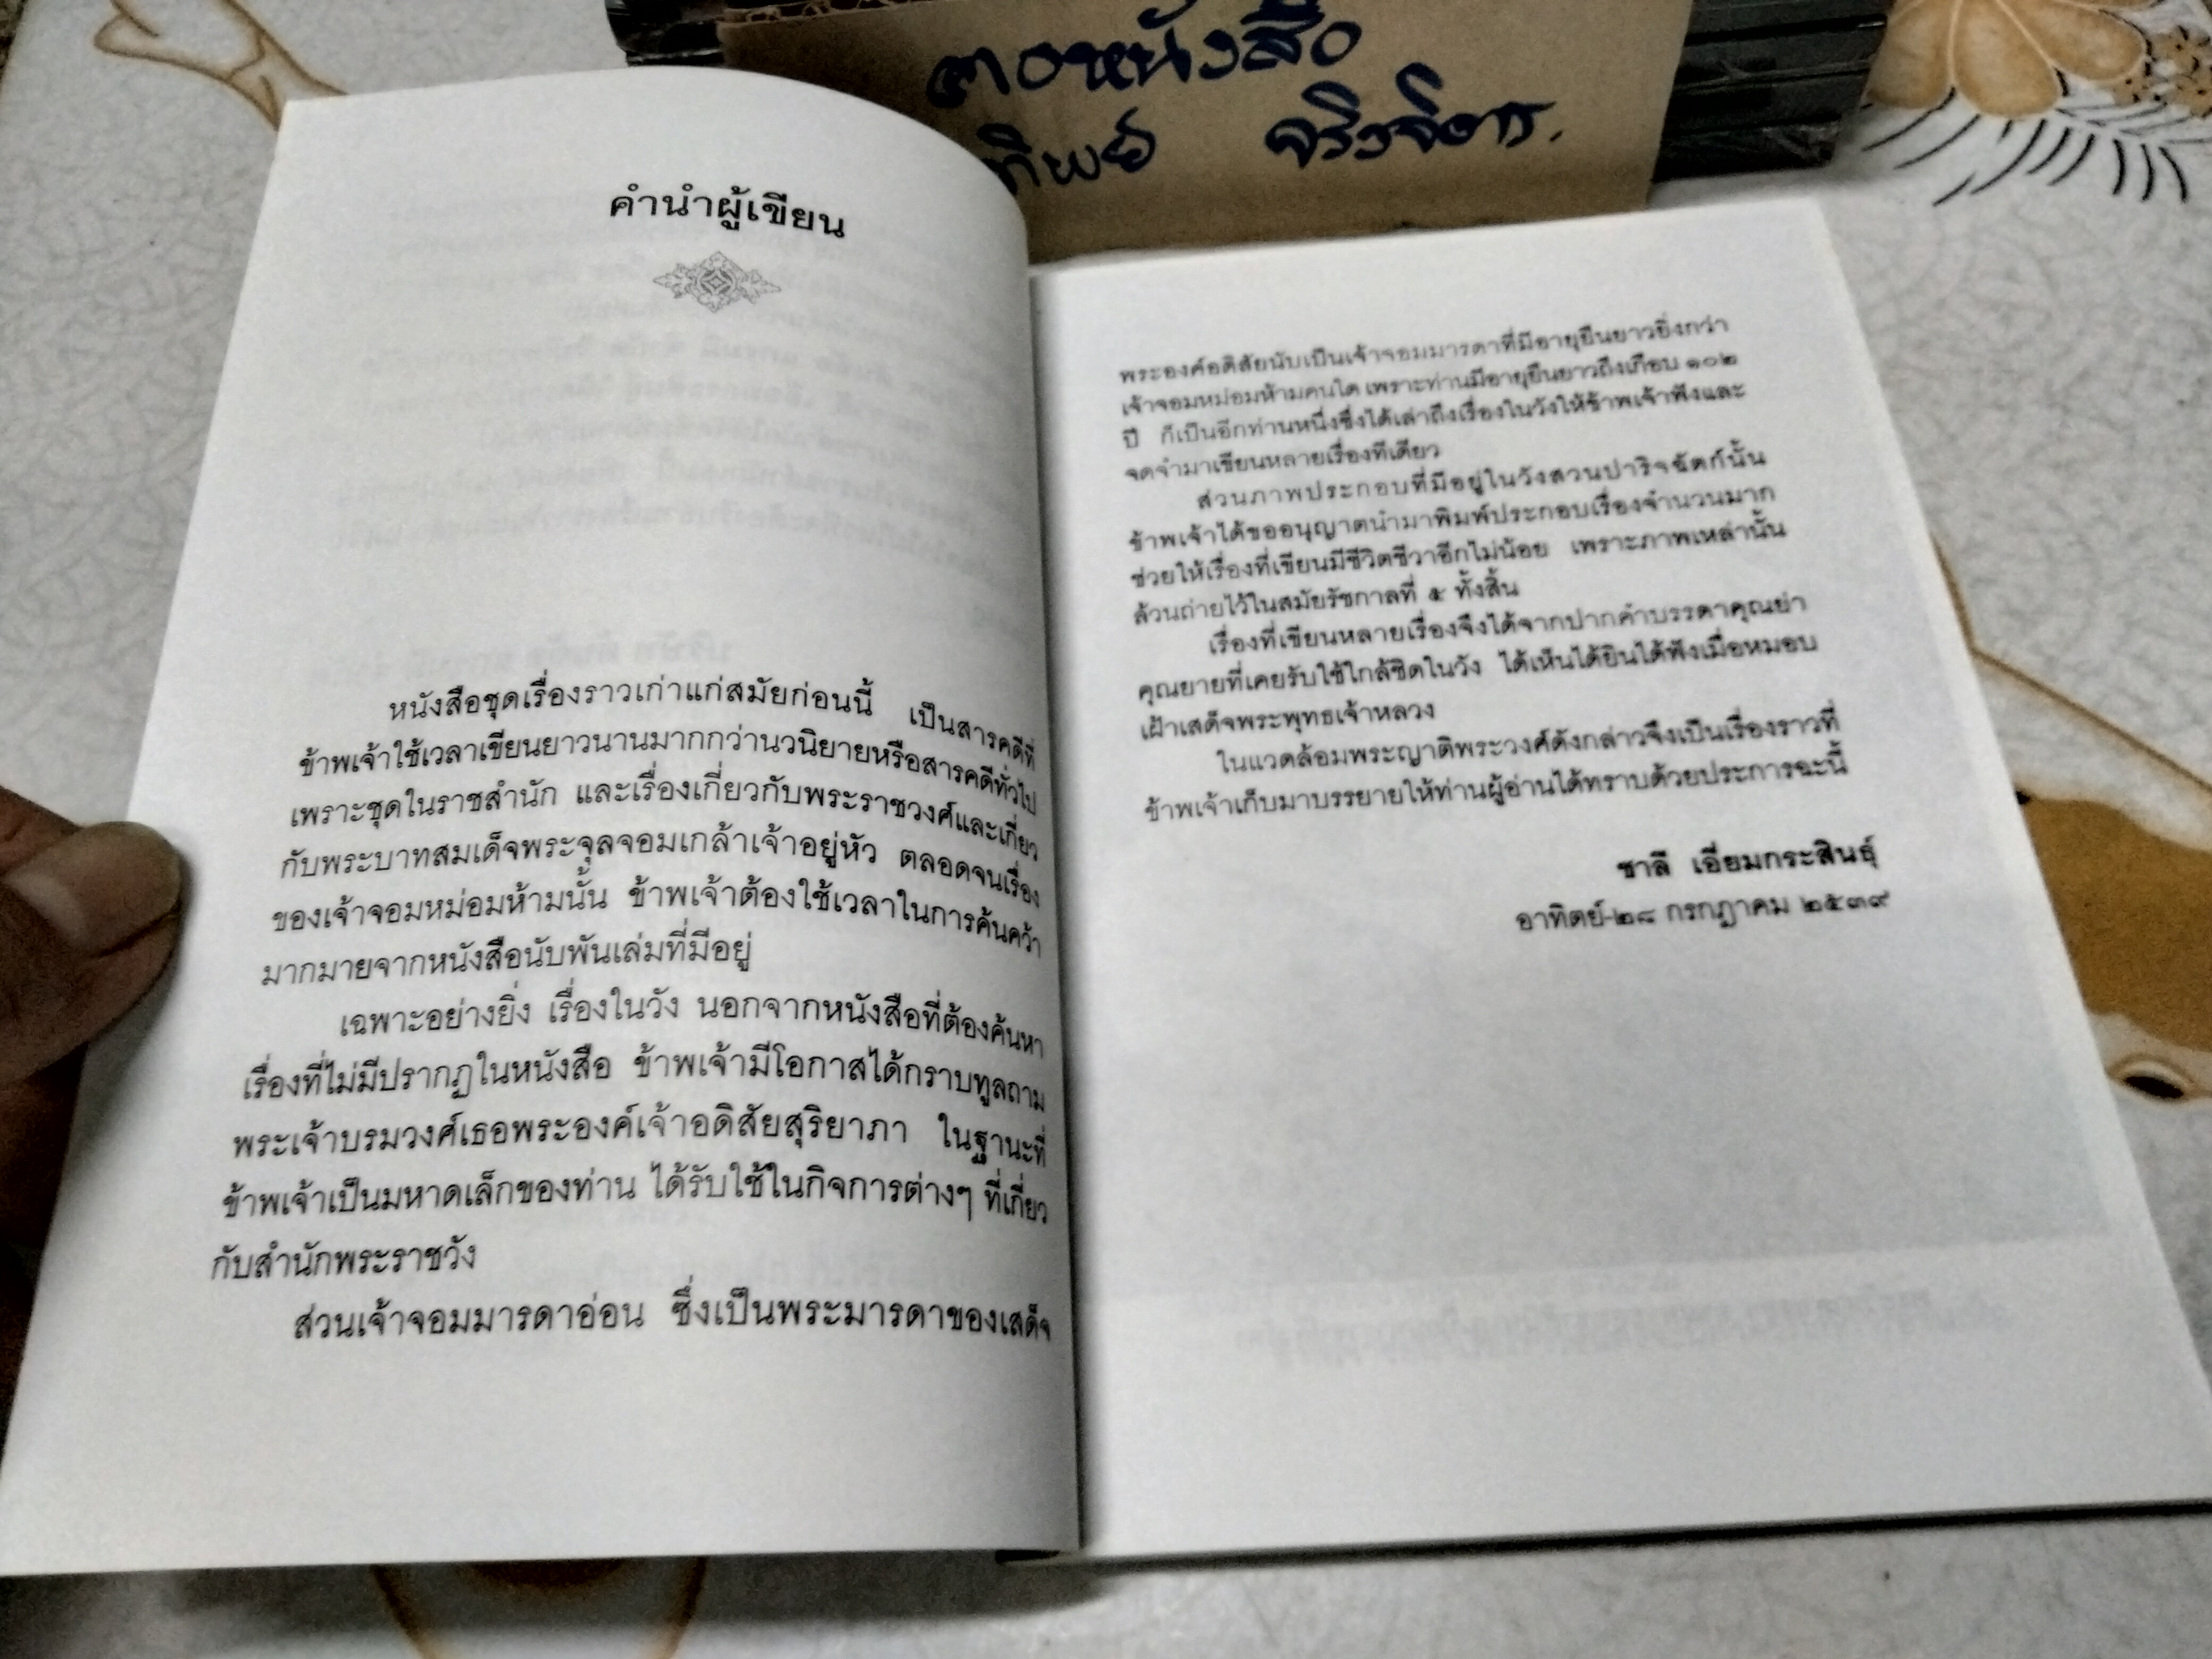 ๓๐หนังสือ
ทิพย์
คำนำผู้เขียน
หนังสือชุดเรื่องราวเก่าแก่สมัยก่อนนี้ เป็นสารคดีที่
ข้าพเจ้าใช้เวลาเขียนยาวนานมากกว่านวนิยายหรือสารคดีทั่วไป
เพราะชุดในราชสำนัก และเรื่องเกี่ยวกับพระราชวงศ์และเกี่ยว
กับพระบาทสมเด็จพระจุลจอมเกล้าเจ้าอยู่หัว ตลอดจนเรื่อง
ของเจ้าจอมหม่อมห้ามนั้น ข้าพเจ้าต้องใช้เวลาในการค้นคว้า
มากมายจากหนังสือนับพันเล่มที่มีอยู่
เฉพาะอย่างยิ่ง เรื่องในวัง นอกจากหนังสือที่ต้องค้นหา
เรื่องที่ไม่มีปรากฏในหนังสือ ข้าพเจ้ามีโอกาสได้กราบทูลถาม
พระเจ้าบรมวงศ์เธอพระองค์เจ้าอดิสัยสุริยาภา ในฐานะที่
ข้าพเจ้าเป็นมหาดเล็กของท่าน ได้รับใช้ในกิจการต่างๆ ที่เกี่ยว
กับสำนักพระราชวัง
ส่วนเจ้าจอมมารดาอ่อน ซึ่งเป็นพระมารดาของเสด็จ
พระองค์อดิสัยนับเป็นเจ้าจอมมารดาที่มีอายุยืนยาวยิ่งกว่า
เจ้าจอมหม่อมห้ามคนใด เพราะท่านมีอายุยืนยาวถึงเกือบ ๑๐๒
ปี ก็เป็นอีกท่านหนึ่งซึ่งได้เล่าถึงเรื่องในวังให้ข้าพเจ้าฟังและ
จดจำมาเขียนหลายเรื่องทีเดียว
ส่วนภาพประกอบที่มีอยู่ในวังสวนปาริจฉัตก์นั้น
ข้าพเจ้าได้ขออนุญาตนำมาพิมพ์ประกอบเรื่องจำนวนมาก
ช่วยให้เรื่องที่เขียนมีชีวิตชีวาอีกไม่น้อย เพราะภาพเหล่านั้น
ล้วนถ่ายไว้ในสมัยรัชกาลที่ ๕ ทั้งสิ้น
เรื่องที่เขียนหลายเรื่องจึงได้จากปากคำบรรดาคุณย่า
คุณยายที่เคยรับใช้ใกล้ชิดในวัง ได้เห็นได้ยินได้ฟังเมื่อหมอบ
เฝ้าเสด็จพระพุทธเจ้าหลวง
ในแวดล้อมพระญาติพระวงศ์ดังกล่าวจึงเป็นเรื่องราวที่
ข้าพเจ้าเก็บมาบรรยายให้ท่านผู้อ่านได้ทราบด้วยประการฉะนี้
ชาลี เอี่ยมกระสินธุ์
อาทิตย์-๒๘ กรกฎาคม ๒๕๓๙